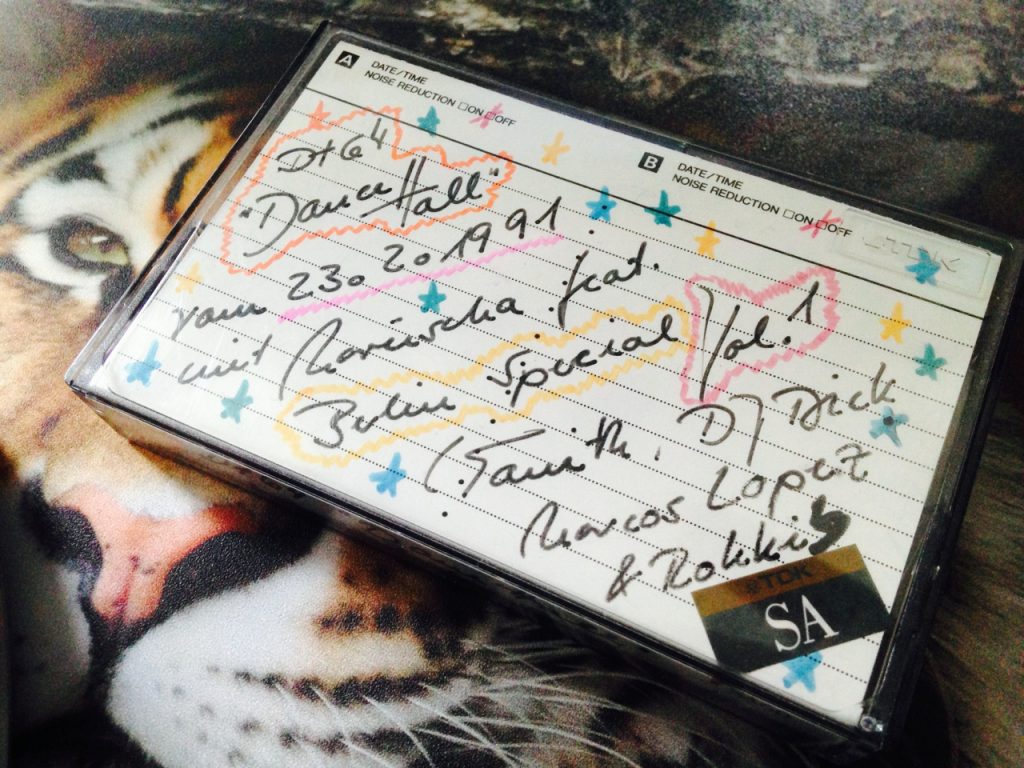 A DATE/TIME
NOISE REDUCTION □ON □OFF
B DATE/TIME
NOISE REDUCTION □ON □OFF
DT64
"Dance Hall"
vom 23.2.1991.
mit Marusha feat.
Berlin Special Vol. 1
(Tanith, DJ Dick
Marcos Lopez
& Rokkis)
TDK
SA